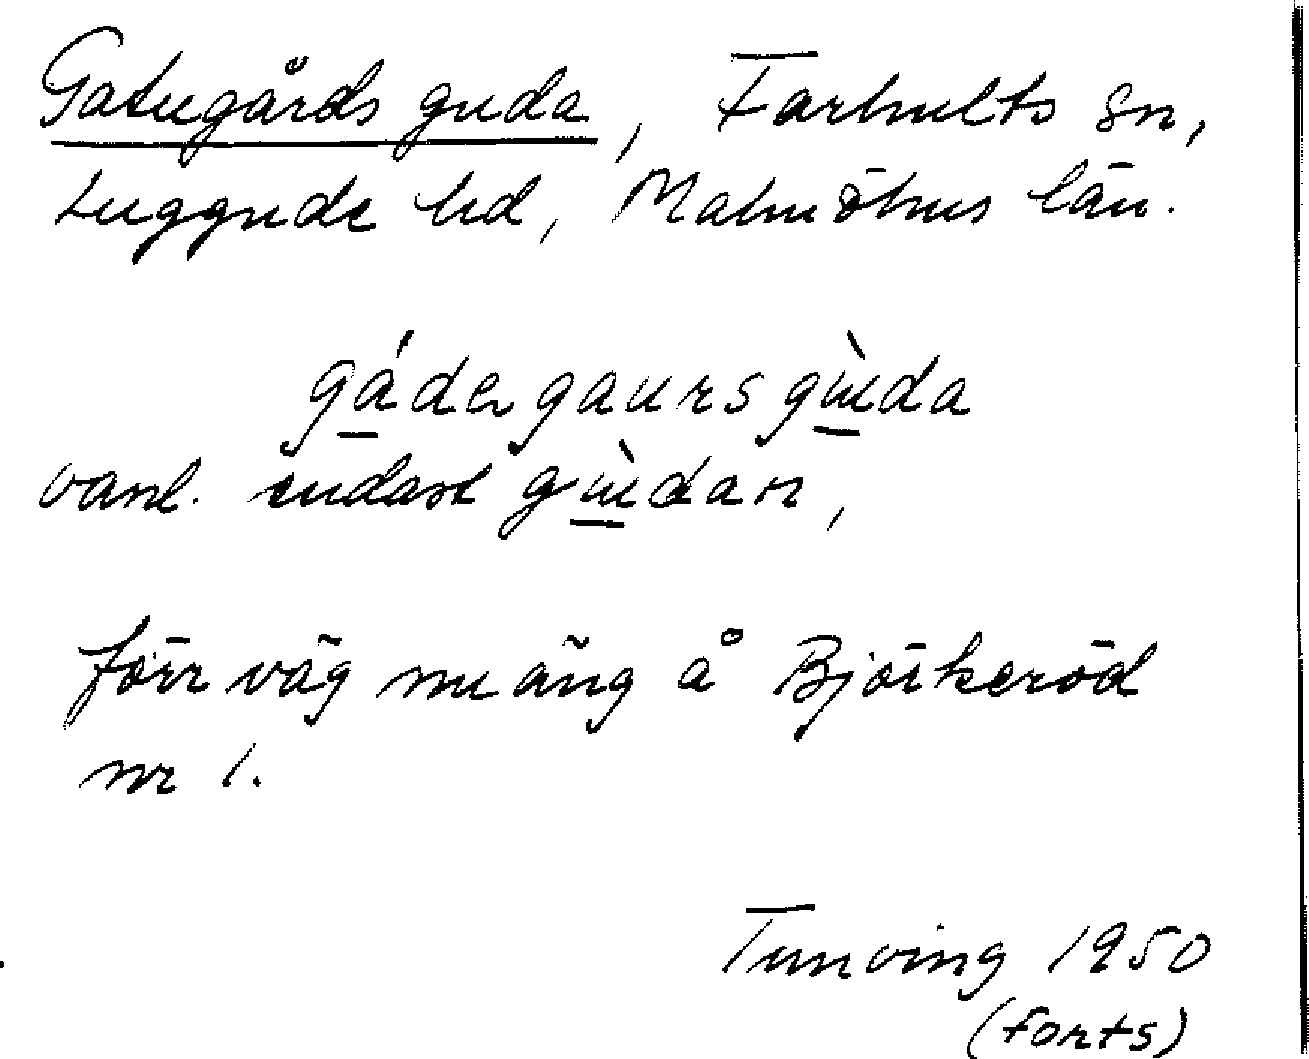 Gatugårds guda, Farhults sn,
Luggude hd, Malmöhus län.
gádergaursgùida
vanl. endast gùidan,
förr väg nu äng å Björkeröd
nr 1.
Tunving 1950
(forts)